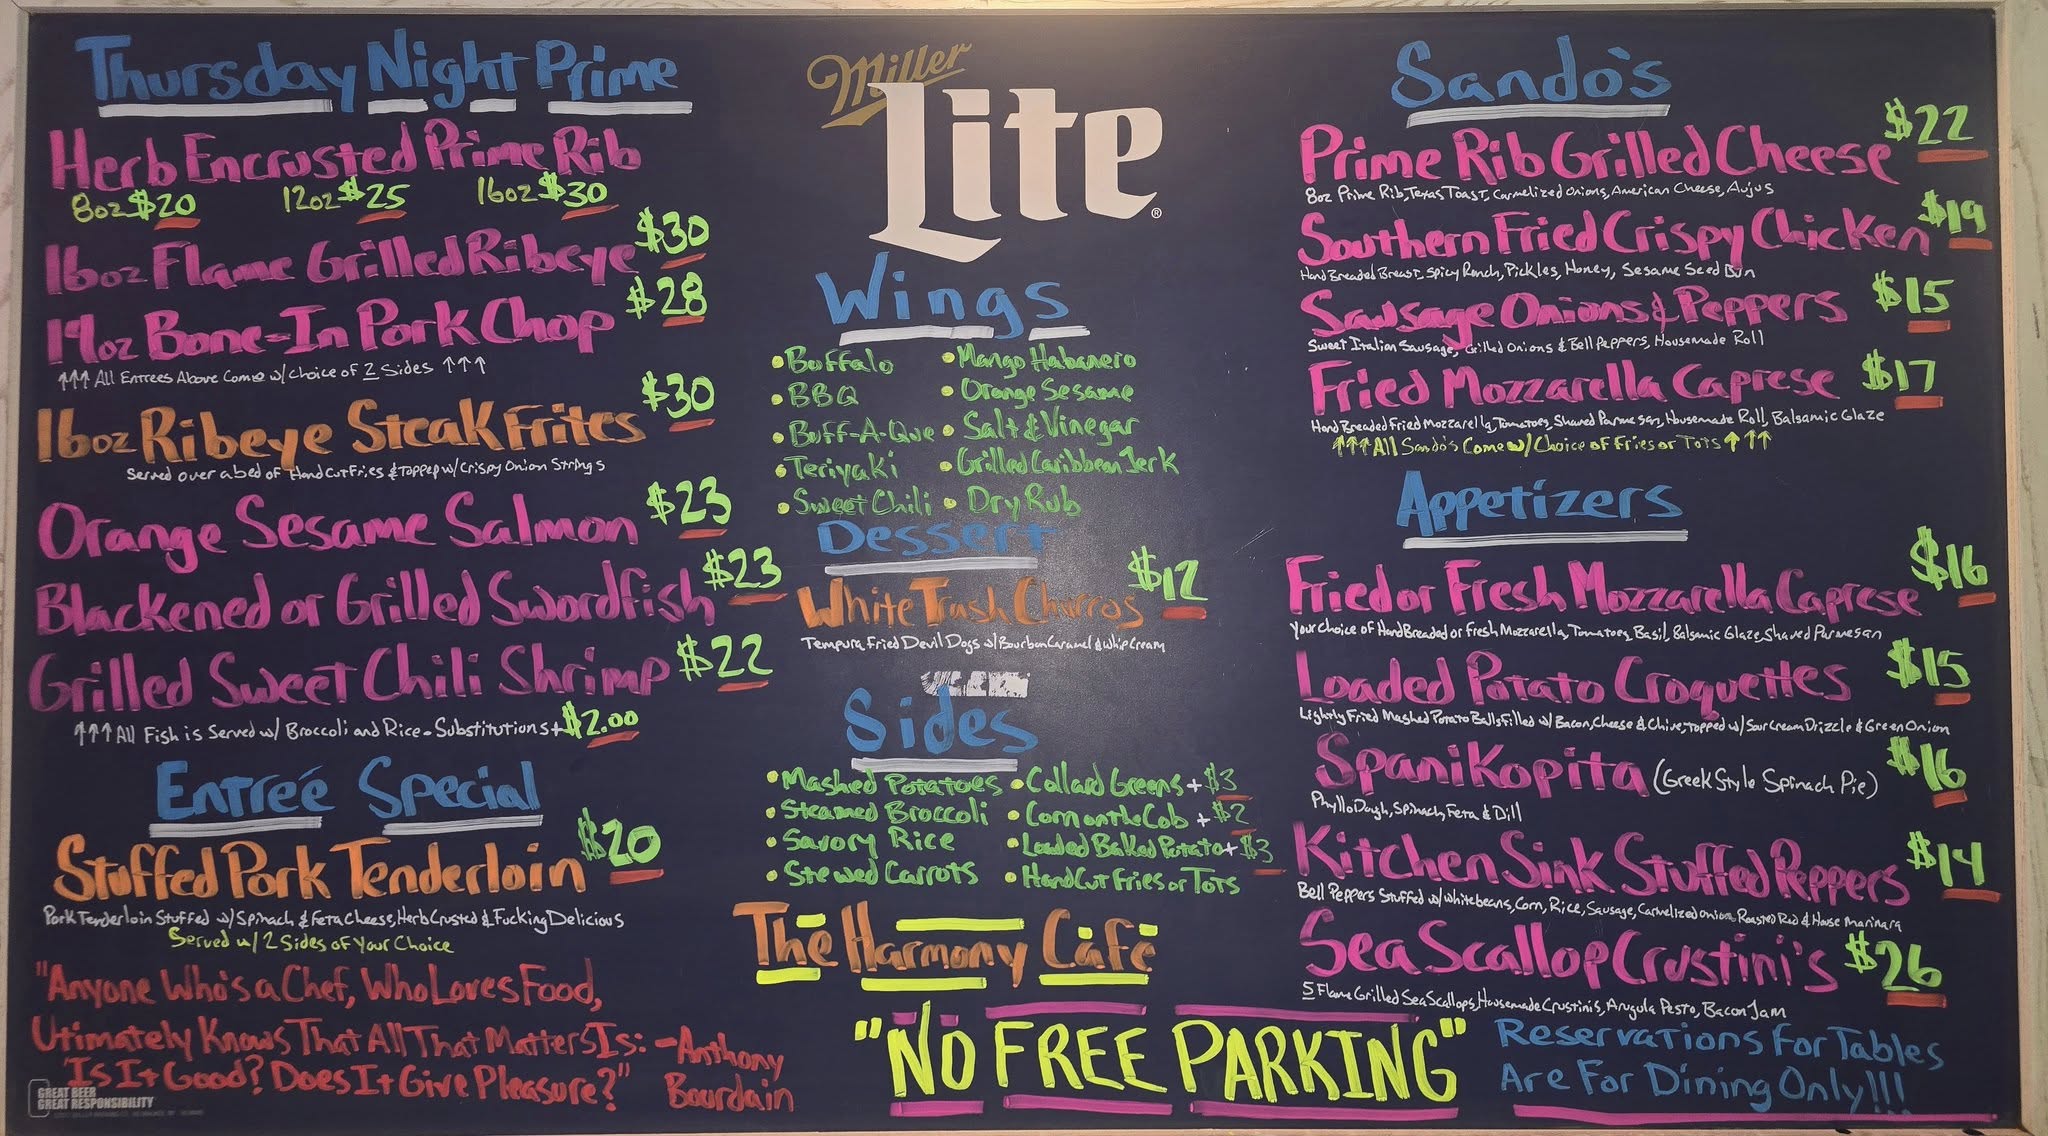 Thursday Night Prime
Herb Encrusted Prime Rib
8oz $20 12oz $25 16oz $30
16oz Flame Grilled Ribeye $30
14oz Bone-In Pork Chop $28
↑↑↑ All Entrees Above Come w/ Choice of 2 Sides ↑↑↑
16oz Ribeye Steak Frites $30
Served over a bed of Hand Cut Fries & Topped w/ Crispy Onion Strings
Orange Sesame Salmon $23
Blackened or Grilled Swordfish $23
Grilled Sweet Chili Shrimp $22
↑↑↑ All Fish is Served w/ Broccoli and Rice - Substitutions + $2.00
Entrée Special
Stuffed Pork Tenderloin $20
Pork Tenderloin Stuffed w/ Spinach & Feta Cheese, Herb Crusted & Fucking Delicious
Served w/ 2 Sides of Your Choice
"Anyone Who's a Chef, Who Loves Food,
Utimately Knows That All That Matters Is:
'Is It Good? Does It Give Pleasure?"
-Anthony
Bourdain
GREAT BEER
GREAT RESPONSIBILITY
Miller
Lite
®
Wings
• Buffalo
• BBQ
• Buff-A-Que
• Teriyaki
• Sweet Chili
• Mango Habanero
• Orange Sesame
• Salt & Vinegar
• Grilled Caribbean Jerk
• Dry Rub
Dessert
White Trash Churros $12
Tempura Fried Devil Dogs w/ Bourbon Caramel & Whip Cream
Sides
• Mashed Potatoes
• Steamed Broccoli
• Savory Rice
• Stewed Carrots
• Collard Greens + $3
• Corn on the Cob + $2
• Loaded Baked Potato + $3
• Hand Cut Fries or Tots
The Harmony Café
"NO FREE PARKING"
Sando's
Prime Rib Grilled Cheese $22
8oz Prime Rib, Texas Toast, Carmelized Onions, American Cheese, Aujus
Southern Fried Crispy Chicken $19
Hand Breaded Breast, Spicy Ranch, Pickles, Honey, Sesame Seed Bun
Sausage Onions & Peppers $15
Sweet Italian Sausage, Grilled Onions & Bell Peppers, Housemade Roll
Fried Mozzarella Caprese $17
Hand Breaded Fried Mozzarella, Tomatoes, Shaved Parmesan, Housemade Roll, Balsamic Glaze
↑↑↑ All Sando's Come w/ Choice of Fries or Tots ↑↑↑
Appetizers
Fried or Fresh Mozzarella Caprese $16
Your Choice of Hand Breaded or Fresh Mozzarella, Tomatoes, Basil, Balsamic Glaze, Shaved Parmesan
Loaded Potato Croquettes $15
Lightly Fried Mashed Potato Balls Filled w/ Bacon, Cheese & Chive, Topped w/ Sour Cream Drizzle & Green Onion
Spanikopita (Greek Style Spinach Pie) $16
Phyllo Dough, Spinach, Feta & Dill
Kitchen Sink Stuffed Peppers $14
Bell Peppers Stuffed w/ White beans, Corn, Rice, Sausage, Carmelized Onion, Roasted Red & House Marinara
Sea Scallop Crustini's $26
5 Flame Grilled Sea Scallops, Housemade Crustinis, Arugula Pesto, Bacon Jam
Reservations For Tables
Are For Dining Only!!!